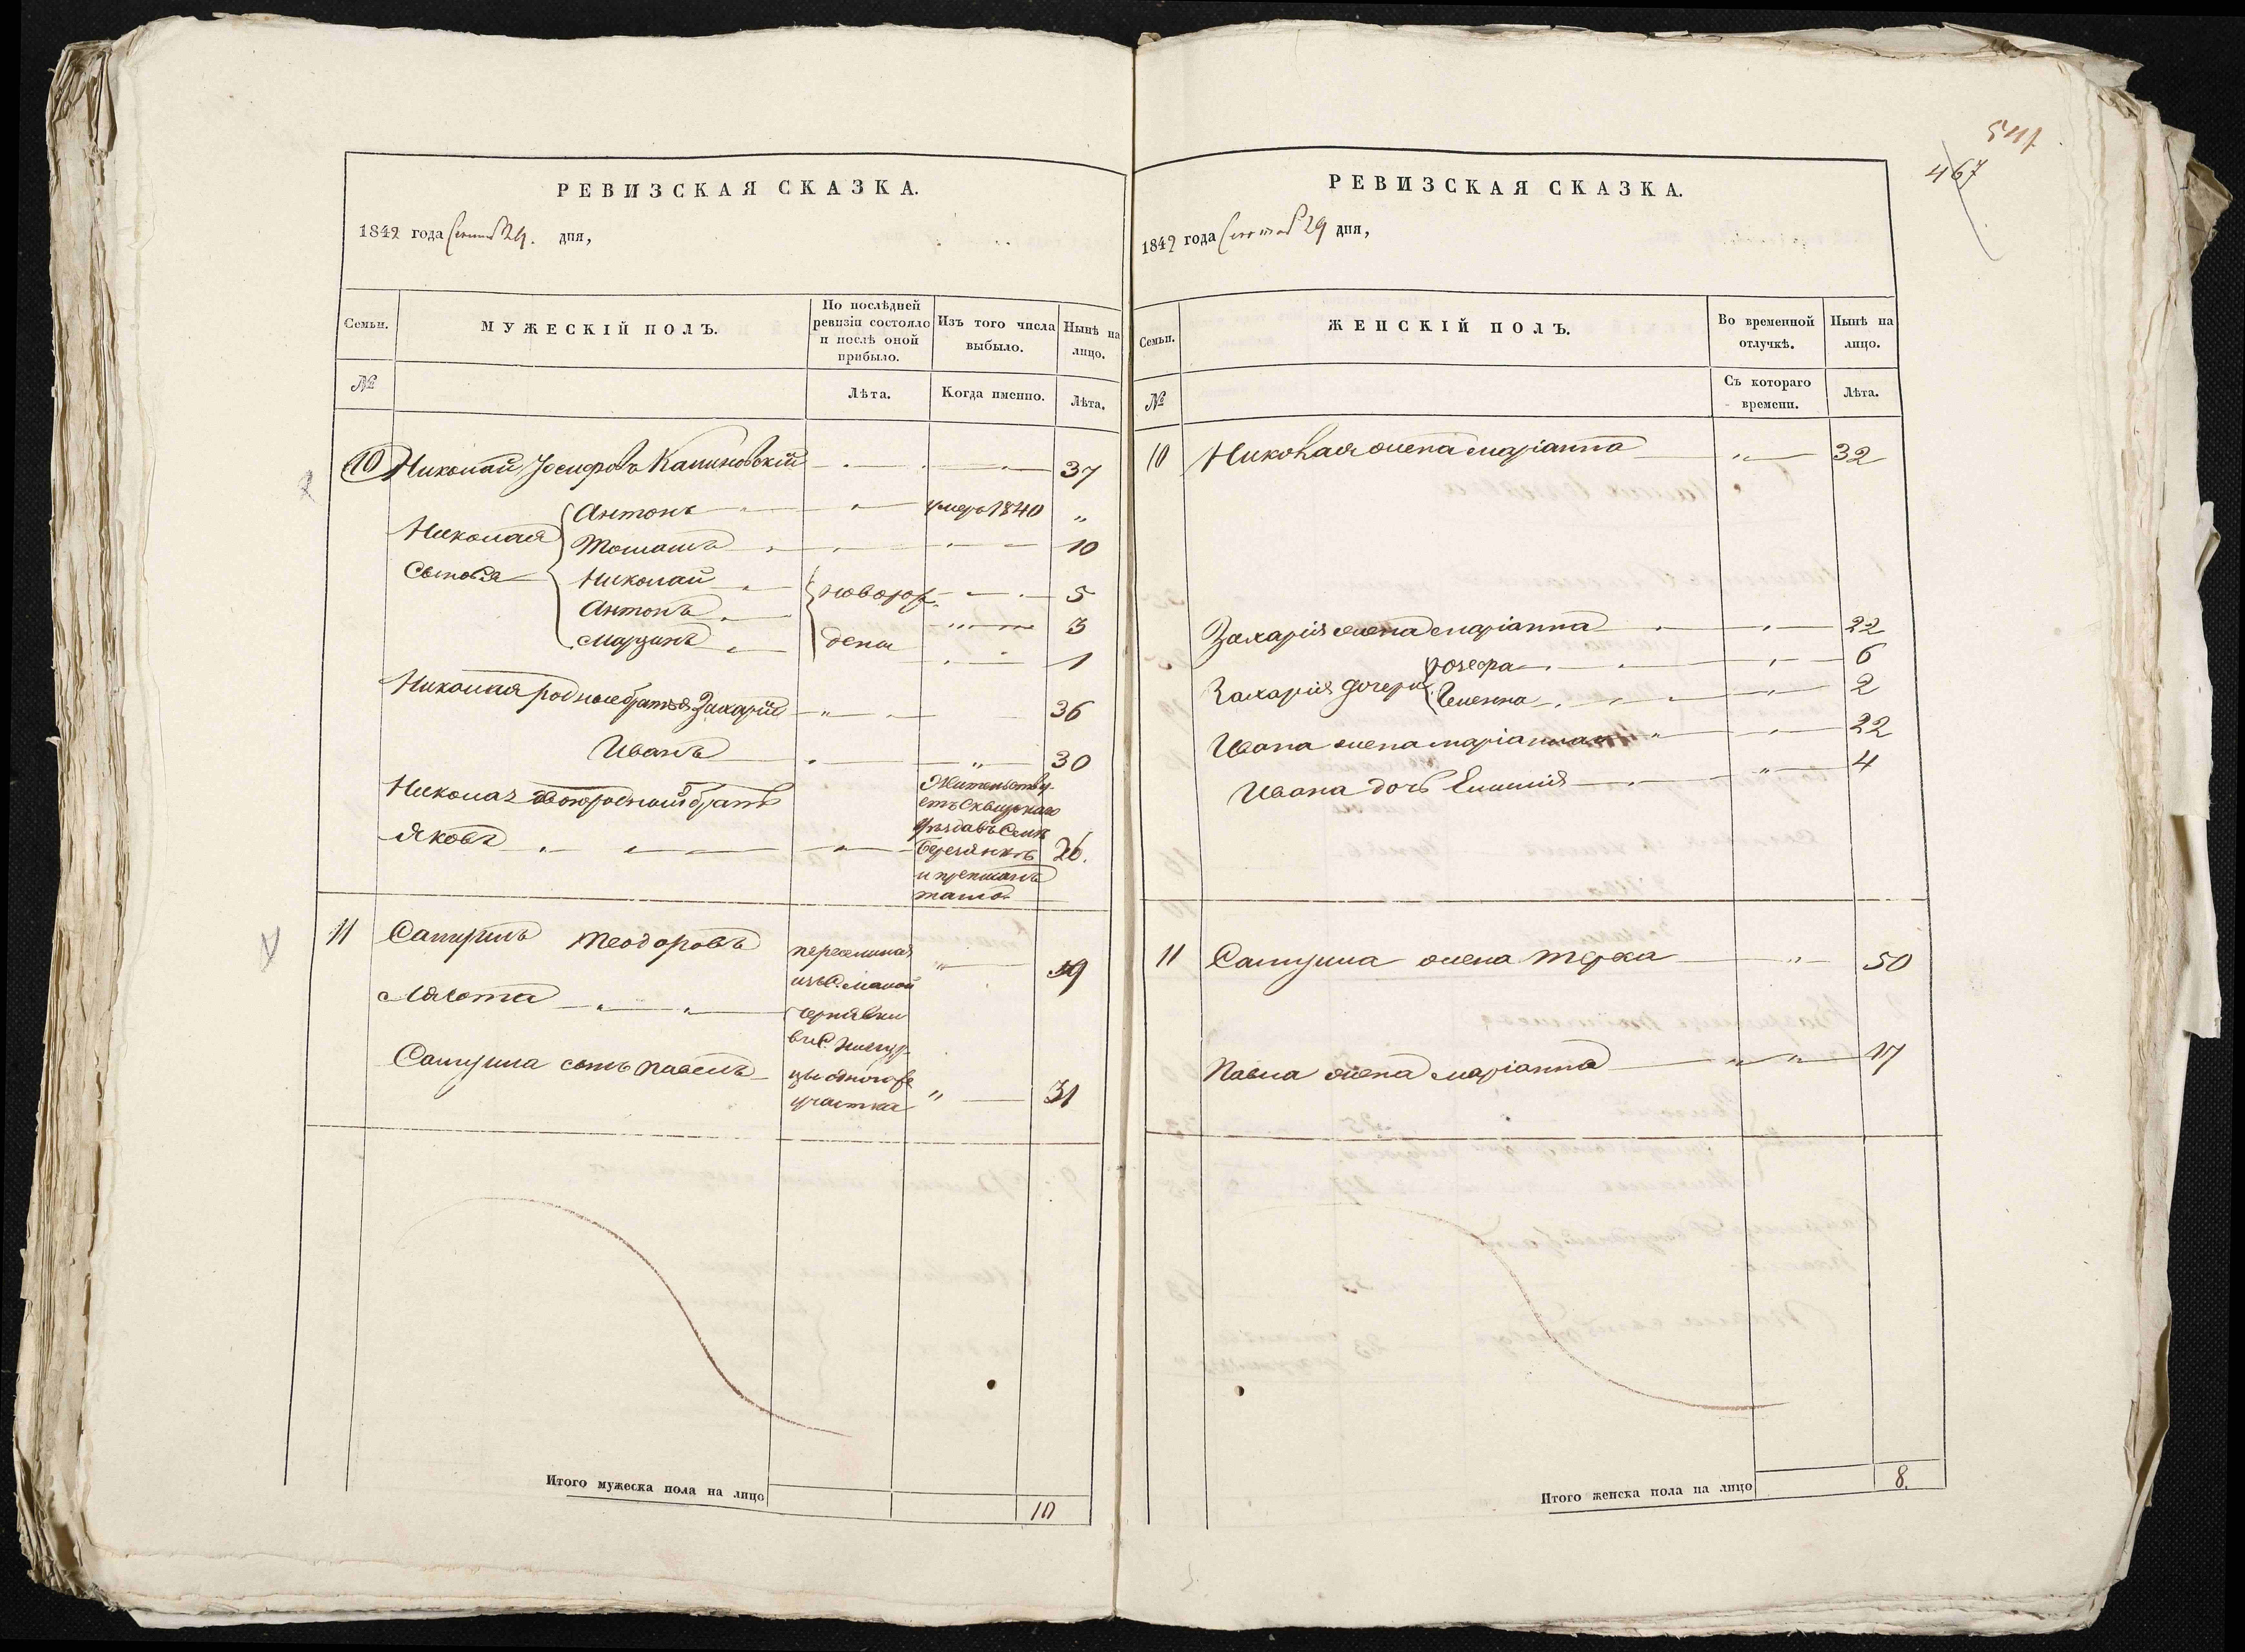 467
РЕВИЗСКАЯ СКАЗКА.
1842 года 29. дня,
Семьи.
МУЖЕСКІЙ ПОЛЪ.
По послѣдней
ревизіи состояло
и послѣ оной
прибыло.
Изъ того числа
выбыло.
Нынѣ на
лицо.
№
Лѣта.
Когда именно.
Лѣта.
10 Николай Іосифовъ Калиновскій 37
Антонъ умеръ 1840 „
Николая Томашъ 10
Сыновья Николай новорож- 5
Антонъ 3
Марцинъ дены 1
Николая родные братья Захарій 36
Иванъ „ 30
Николая двоюродный братъ
Жительству-
етъ Сквирскаго
уѣзда въ Селѣ
Яковъ Березянкѣ 26.
и приписанъ
тамо
11 Самуилъ Теодоровъ 49
переселился
изъ С. Малой
Лякота
Чернявки
въ С.
Самуила сынъ Павелъ 31
цы одного же
участка „
Итого мужеска пола на лицо
10
РЕВИЗСКАЯ СКАЗКА.
1842 года 29 дня,
Семьи.
ЖЕНСКІЙ ПОЛЪ.
Во временной
отлучкѣ.
Нынѣ на
лицо.
№
Съ котораго
времени.
Лѣта.
10 Николая жена Маріанна „ 32
Захарія жена Маріанна „ 22
Захарія дочери Юзефа „ 6
2
Ивана жена Маріанна „ 22
Ивана дочь Емилія „ 4
11 Самуила жена Текла „ 50
Павла жена Маріанна „ „ 17
Итого женска пола на лицо
8.